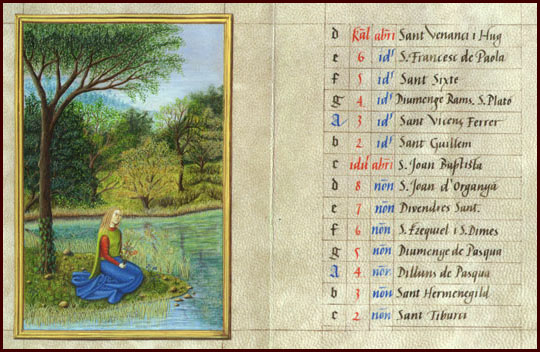 d kal̄ abri Sant Venanci i Hug
e 6 idˢ S. Francesc de Paola
f 5 idˢ Sant Sixte
g 4 idˢ Diumenge Rams. S. Plató
A 3 idˢ Sant Vicenç Ferrer
b 2 idˢ Sant Guillem
c iduˢ abri S. Joan Baptista
d 8 nōn S. Joan d'Organyà
e 7 nōn Divendres Sant.
f 6 nōn S. Ezequiel i S. Dimes
g 5 nōn Diumenge de Pasqua
A 4 nōn Dilluns de Pasqua
b 3 nōn Sant Hermenegild
c 2 nōn Sant Tiburci